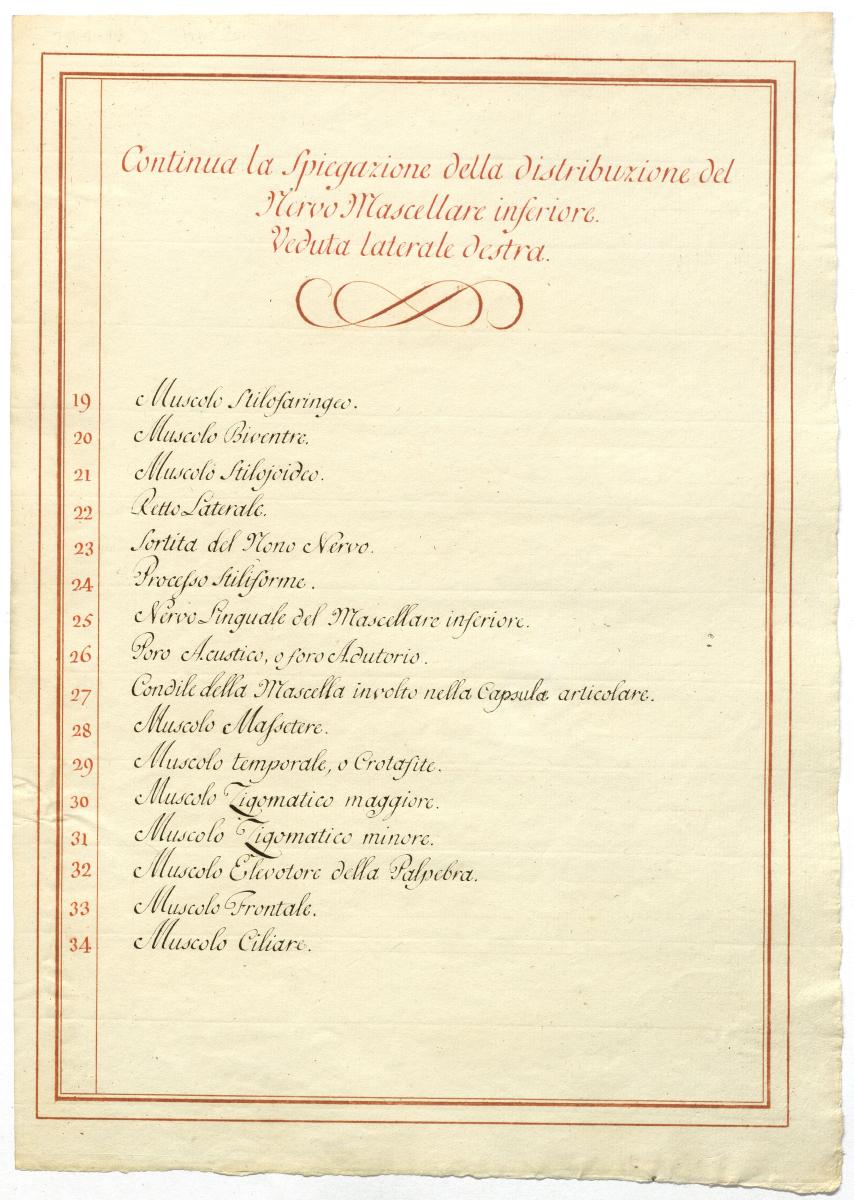 Continua la Spiegazione della distribuzione del
Nervo Mascellare inferiore.
Veduta laterale destra.
19 Muscolo Stilofaringeo.
20 Muscolo Biventre.
21 Muscolo Stilojoideo.
22 Retto Laterale.
23 Sortita del Nono Nervo.
24 Procesſo Stiliforme.
25 Nervo Linguale del Mascellare inferiore.
26 Poro Acustico, o foro Adutorio.
27 Condile della Mascella involto nella Capsula articolare.
28 Muscolo Maſsetere.
29 Muscolo temporale, o Crotafite.
30 Muscolo Zigomatico maggiore.
31 Muscolo Zigomatico minore.
32 Muscolo Elevotore della Palpebra.
33 Muscolo Frontale.
34 Muscolo Ciliare.